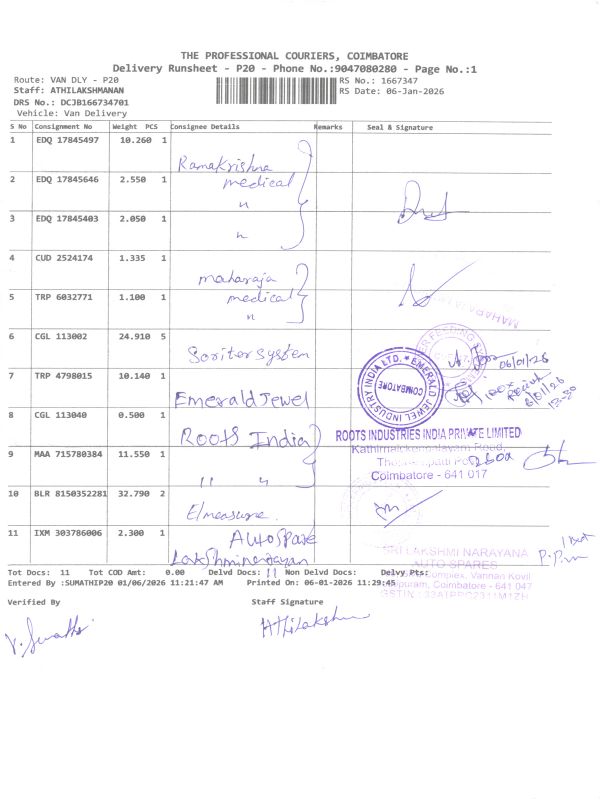 THE PROFESSIONAL COURIERS, COIMBATORE
Delivery Runsheet - P20 - Phone No.:9047080280 - Page No.:1
Route: VAN DLY - P20
RS No.: 1667347
Staff: ATHILAKSHMANAN
RS Date: 06-Jan-2026
DRS No.: DCJB166734701
Vehicle: Van Delivery
S No Consignment No Weight PCS Consignee Details Remarks Seal & Signature
1 EDQ 17845497 10.260 1 Ramakrishna
2 EDQ 17845646 2.550 1 medical
"
3 EDQ 17845403 2.050 1 "
4 CUD 2524174 1.335 1 maharaja
5 TRP 6032771 1.100 1 medical
"
MAHARAJA
6 CGL 113002 24.910 5 Soriter System
06/01/26
7 TRP 4798015 10.140 1 Emerald Jewel
EMERALD JEWEL INDUSTRY INDIA LTD.
COIMBATORE
6/01/26
8 CGL 113040 0.500 1 Roots India
ROOTS INDUSTRIES INDIA PRIVATE LIMITED
Kathirnaickenpalayam Road,
9 MAA 715780384 11.550 1 " "
Coimbatore - 641 017
10 BLR 8150352281 32.790 2 Elmeasure
11 IXM 303786006 2.300 1 Autospare
Lakshminarayan
SRI LAKSHMI NARAYANA
AUTO SPARES
Complex, Vannan Kovil
Coimbatore - 641 047
Tot Docs: 11 Tot COD Amt: 0.00 Delvd Docs: 11 Non Delvd Docs: Delvy Pts:
Entered By :SUMATHIP20 01/06/2026 11:21:47 AM Printed On: 06-01-2026 11:29:45
Verified By Staff Signature